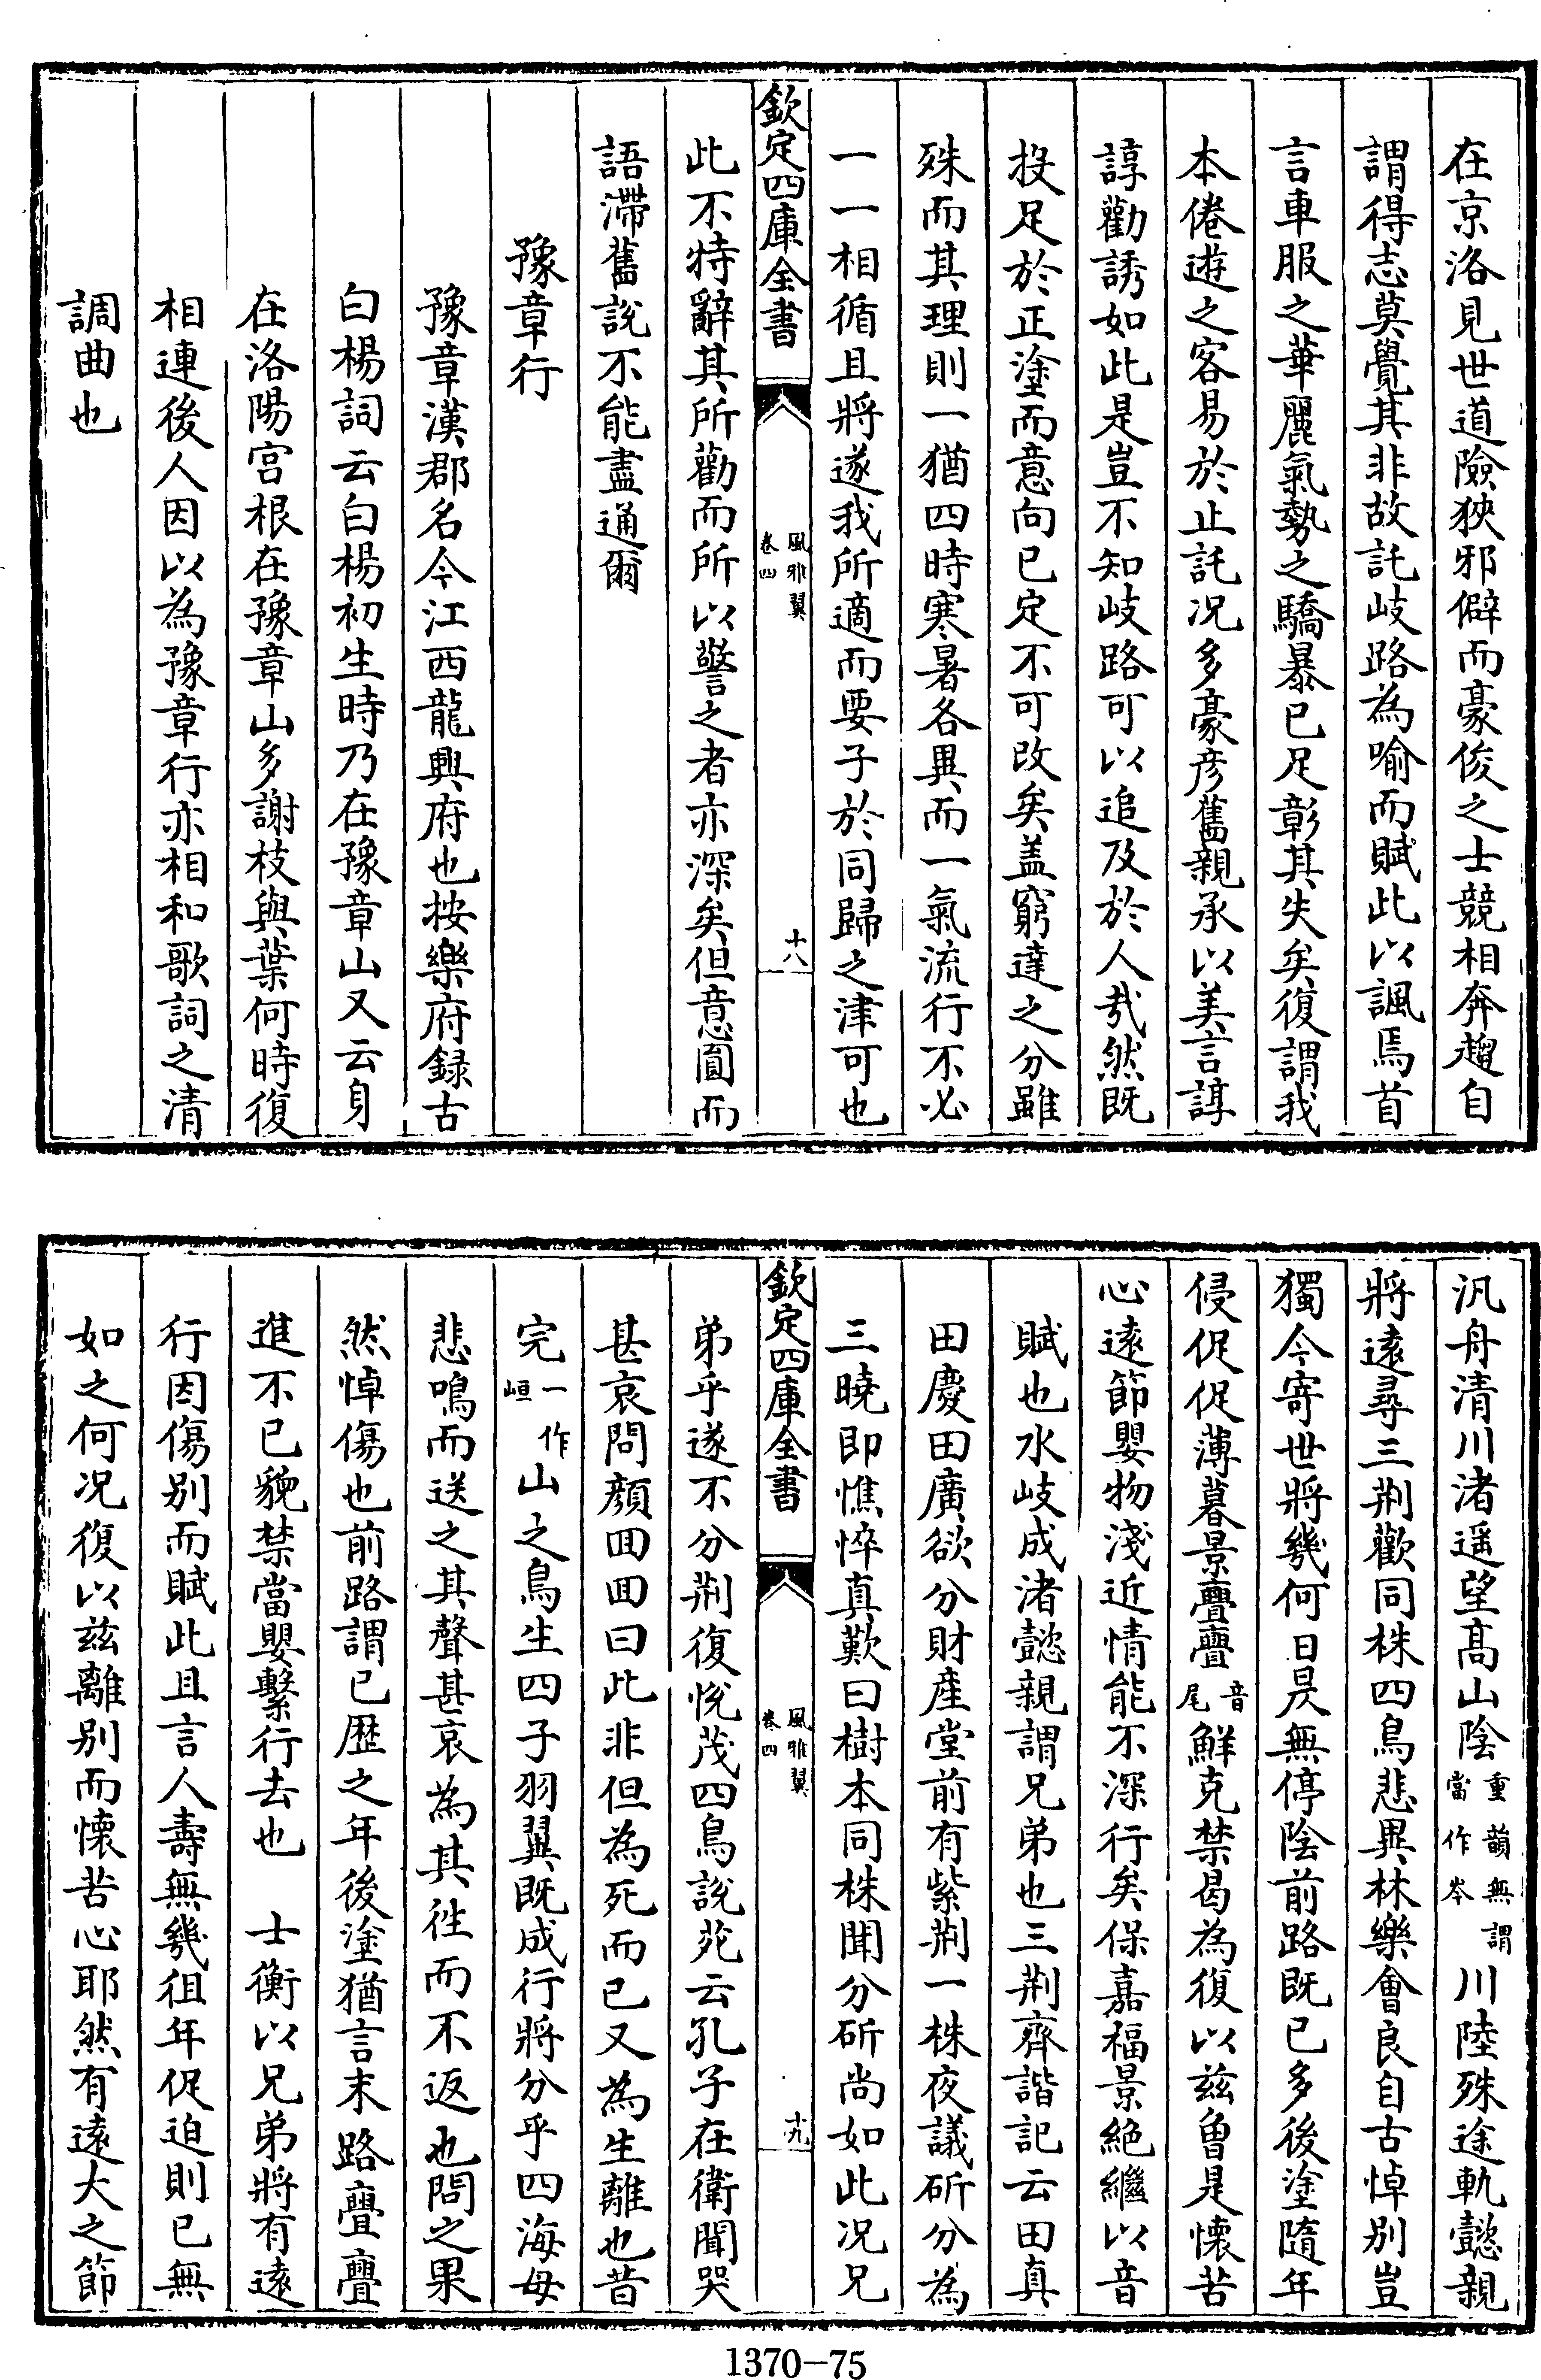 在京洛見世道險狹邪僻而豪俊之士競相奔趨自
謂得志莫覺其非故託岐路為喻而賦此以諷焉首
言車服之華麗氣勢之驕暴已足彰其失矣復謂我
本倦遊之客易於止託况多豪彦舊親承以美言諄
諄勸誘如此是豈不知岐路可以追及於人哉然既
投足於正塗而意向已定不可改矣盖窮達之分雖
殊而其理則一猶四時寒暑各異而一氣流行不必
一一相循且將遂我所適而要子於同歸之津可也
欽定四庫全書
風雅翼
卷四
十八
此不特辭其所勸而所以警之者亦深矣但意圓而
語滯舊說不能盡通爾
豫章行
豫章漢郡名今江西龍興府也按樂府録古
白楊詞云白楊初生時乃在豫章山又云身
在洛陽宫根在豫章山多謝枝與葉何時復
相連後人因以為豫章行亦相和歌詞之清
調曲也
汎舟清川渚遥望髙山陰重韻無謂當作岑川陸殊途軌懿親
將遠尋三荆歡同株四鳥悲異林樂會良自古悼别豈
獨今寄世將幾何日昃無停陰前路既已多後塗隨年
侵促促薄暮景亹亹音尾鮮克禁曷為復以兹曾是懷苦
心遠節嬰物淺近情能不深行矣保嘉福景絶繼以音
賦也水岐成渚懿親謂兄弟也三荆齊諧記云田真
田慶田廣欲分財産堂前有紫荆一株夜議斫分為
三曉即憔悴真歎曰樹本同株聞分斫尚如此况兄
欽定四庫全書
風雅翼
卷四
十九
弟乎遂不分荆復悅茂四鳥說苑云孔子在衛聞哭
甚哀問顔囬囬曰此非但為死而已又為生離也昔
完一作峘山之鳥生四子羽翼既成行將分乎四海母
悲鳴而送之其聲甚哀為其徃而不返也問之果
然悼傷也前路謂已歴之年後塗猶言末路亹亹
進不已貌禁當嬰繫行去也　士衡以兄弟將有遠
行因傷别而賦此且言人壽無幾徂年促迫則已無
如之何况復以兹離别而懷苦心耶然有遠大之節
1370—75